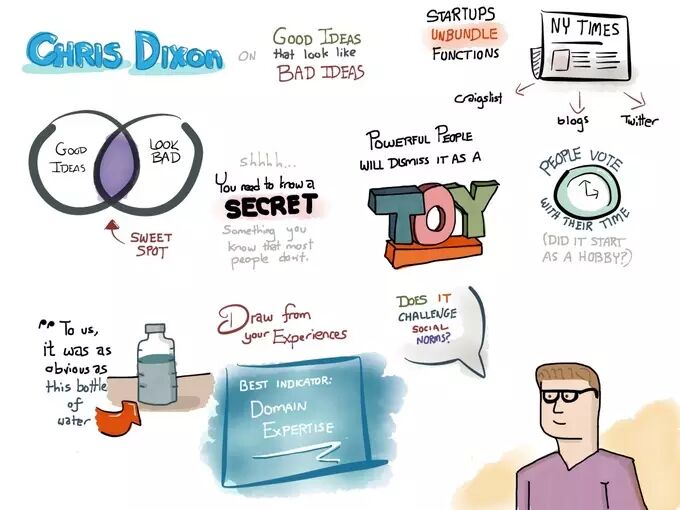 CHRIS DIXON
ON
GOOD IDEAS
that look like
BAD IDEAS
STARTUPS
UNBUNDLE
FUNCTIONS
NY TIMES
craigslist
blogs
Twitter
GOOD
IDEAS
LOOK
BAD
SWEET
SPOT
shhhh...
You need to know a
SECRET
Something you
know that most
people don't.
POWERFUL PEOPLE
WILL DISMISS IT AS A
TOY
PEOPLE VOTE
WITH THEIR TIME
(DID IT START
AS A HOBBY?)
" To us,
it was as
obvious as
this bottle
of
water
Draw from
your Experiences
BEST INDICATOR:
DOMAIN
EXPERTISE
DOES IT
CHALLENGE
SOCIAL
NORMS?